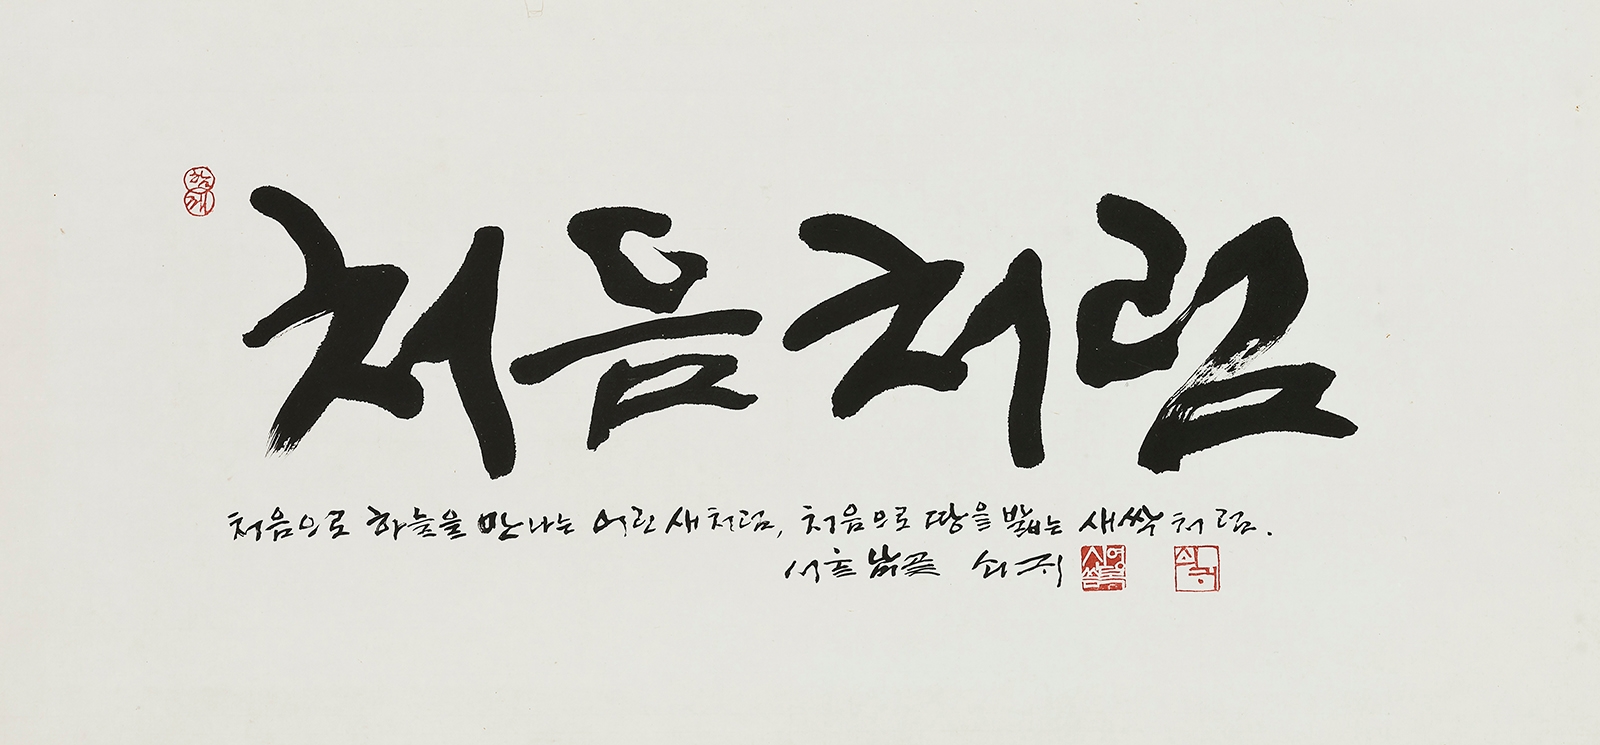 함께
처음처럼
처음으로 하늘을 만나는 어린 새처럼, 처음으로 땅을 밟는 새싹처럼.
쇠귀 쇠귀